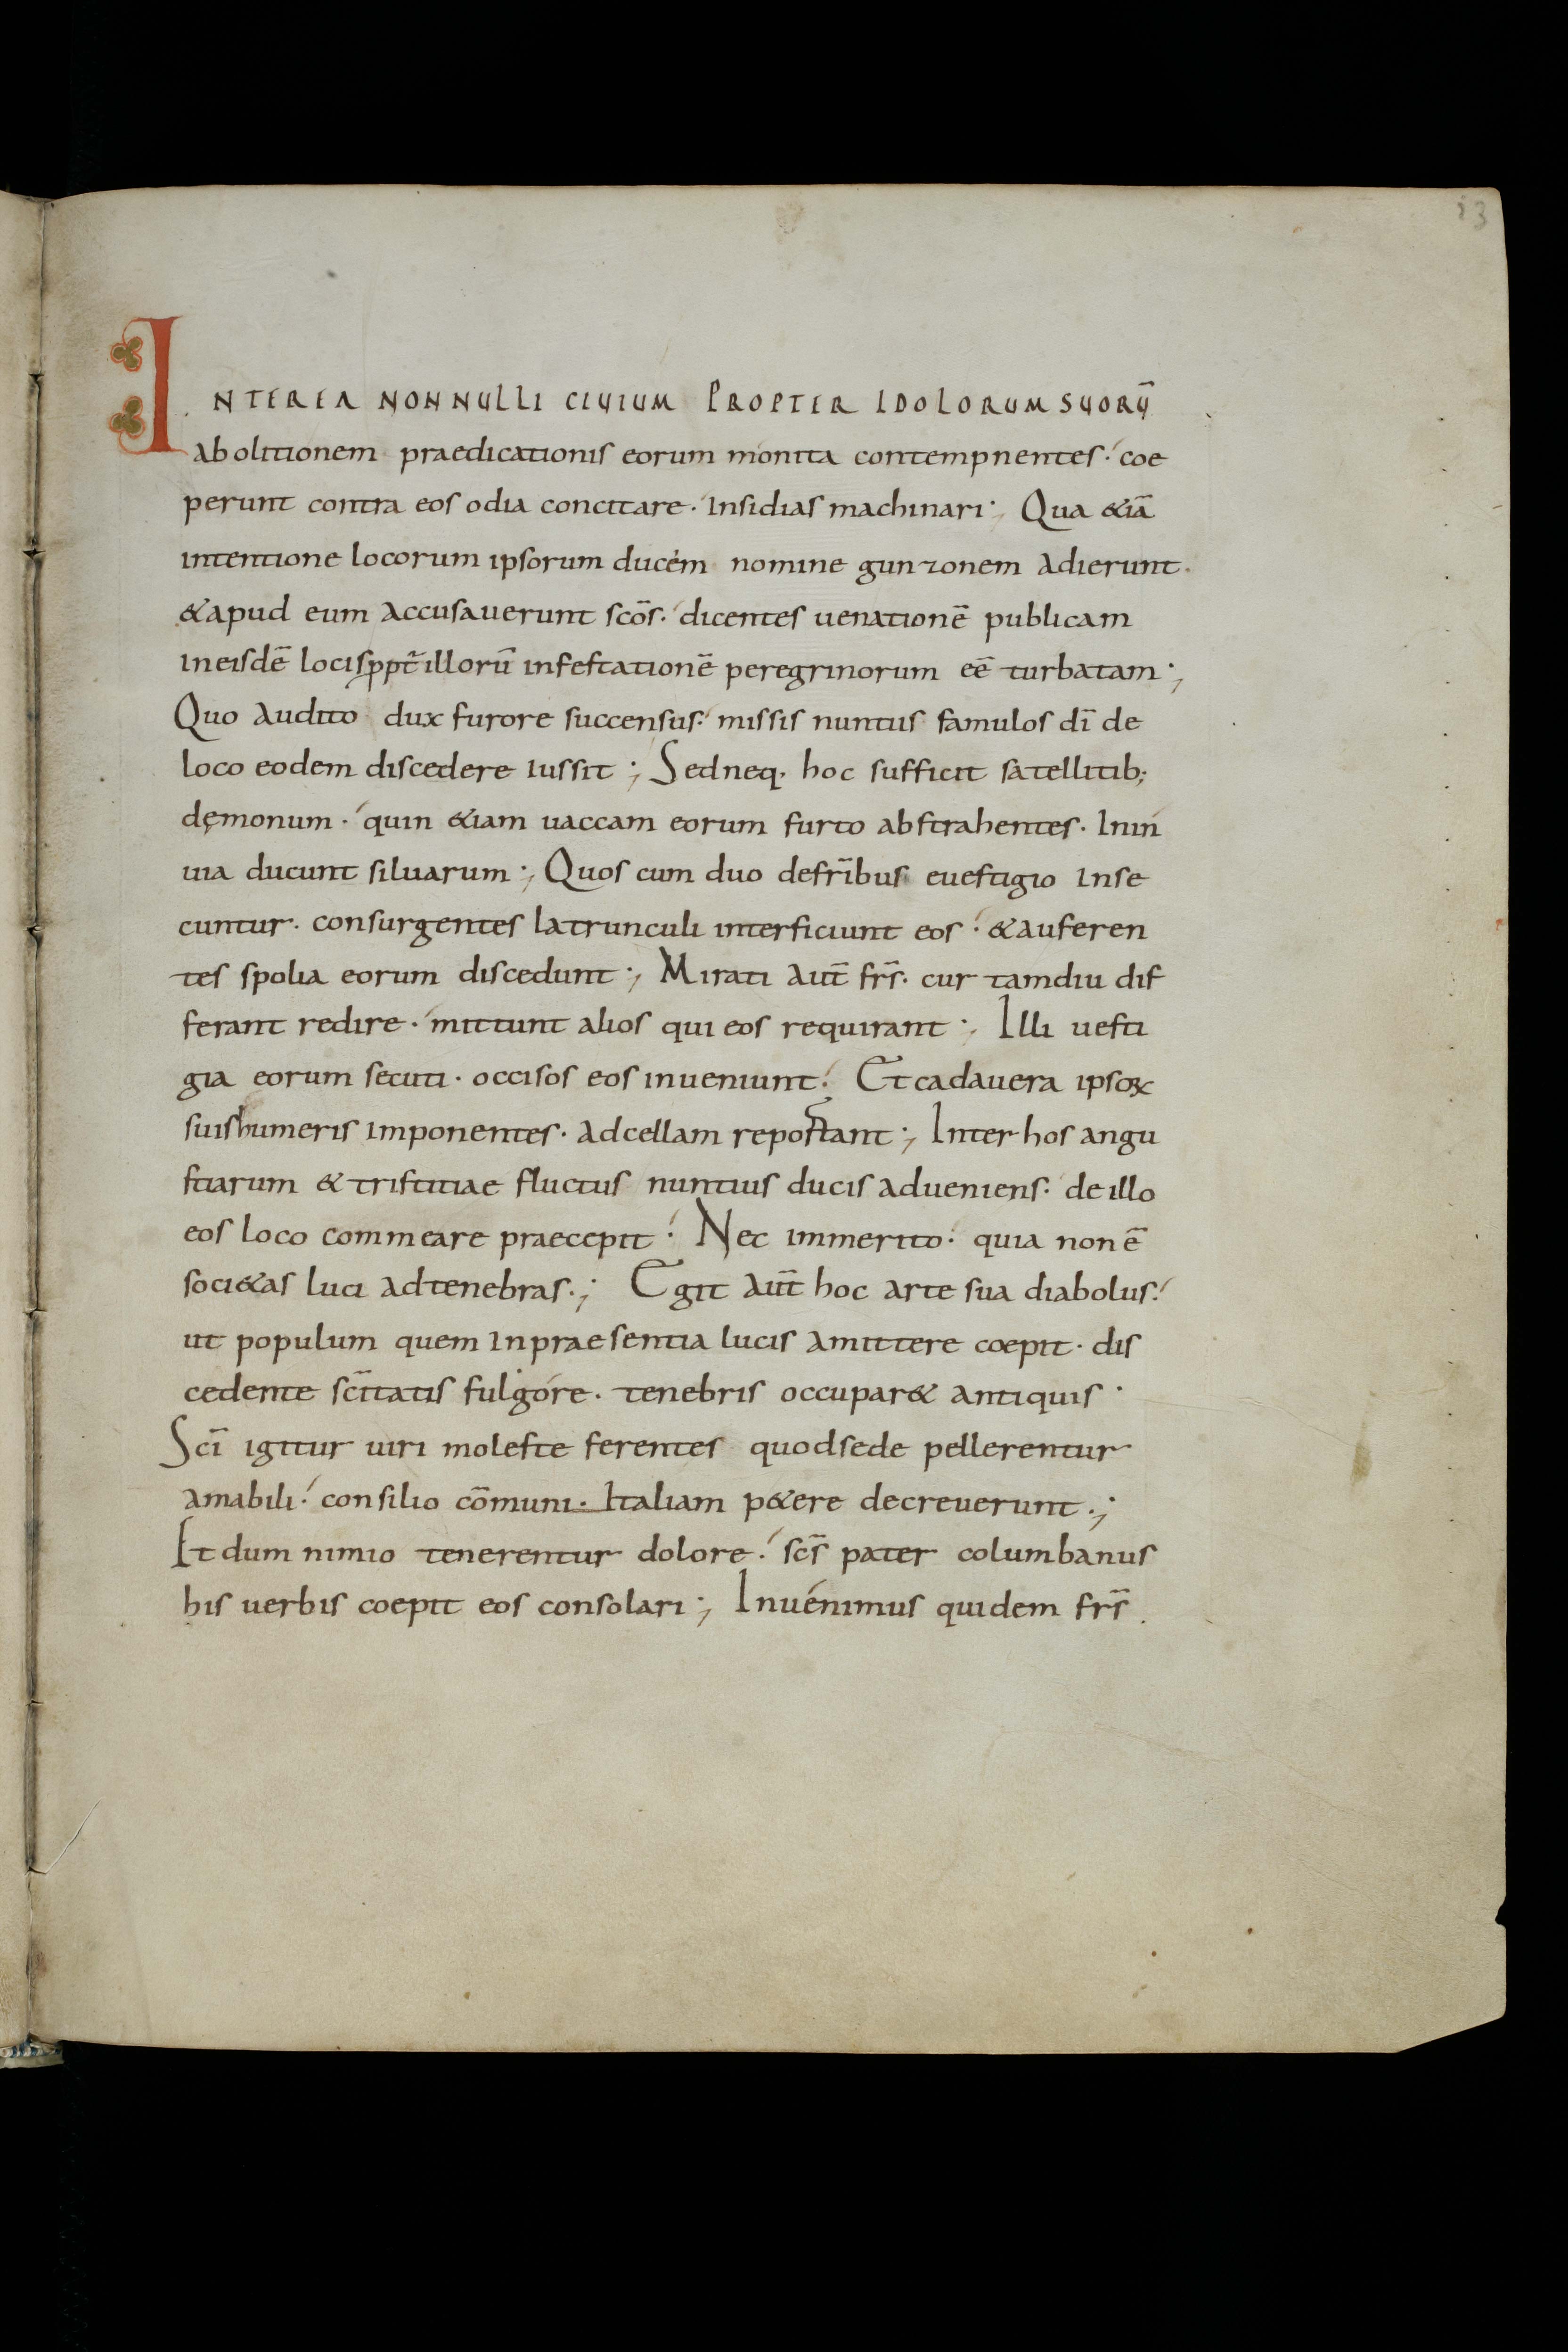 13
INTEREA NONNULLI CIUIUM PROPTER IDOLORUM SUORŪ
abolitionem praedicationis eorum monita contempnentes. coe
perunt contra eos odia concitare. insidias machinari; Qua &iā
intentione locorum ipsorum ducem nomine gunzonem adierunt.
& apud eum accusauerunt scōs. dicentes uenationē publicam
in eisdē locis ppt̄ illorū infestationē peregrinorum eē turbatam;
Quo audito dux furore succensus. missis nuntiis famulos dī de
loco eodem discedere iussit; Sed neq. hoc sufficit satellitib;
dęmonum. quin &iam uaccam eorum furto abstrahentes. In in
uia ducunt siluarum; Quos cum duo de fr̄ibus e uestigio inse
cuntur. consurgentes latrunculi interficiunt eos. & auferen
tes spolia eorum discedunt; Mirati aut̄ fr̄s. cur tamdiu dif
ferant redire. mittunt alios qui eos requirant; Illi uesti
gia eorum secuti. occisos eos inueniunt. Et cadauera ipsoꝝ
suis humeris imponentes. ad cellam reportant; Inter hos angu
stiarum & tristitiae fluctus nuntius ducis adueniens. de illo
eos loco commeare praecepit. Nec immerito. quia non ē
soci&as luci ad tenebras.; Egit aut̄ hoc arte sua diabolus.
ut populum quem in praesentia lucis amittere coepit. dis
cedente sc̄itatis fulgore. tenebris occupar& antiquis.
Scī igitur uiri moleste ferentes quod sede pellerentur
amabili. consilio cōmuni. Italiam p&ere decreuerunt.;
Et dum nimio tenerentur dolore. sc̄s pater columbanus
his uerbis coepit eos consolari; Inuenimus quidem fr̄s.